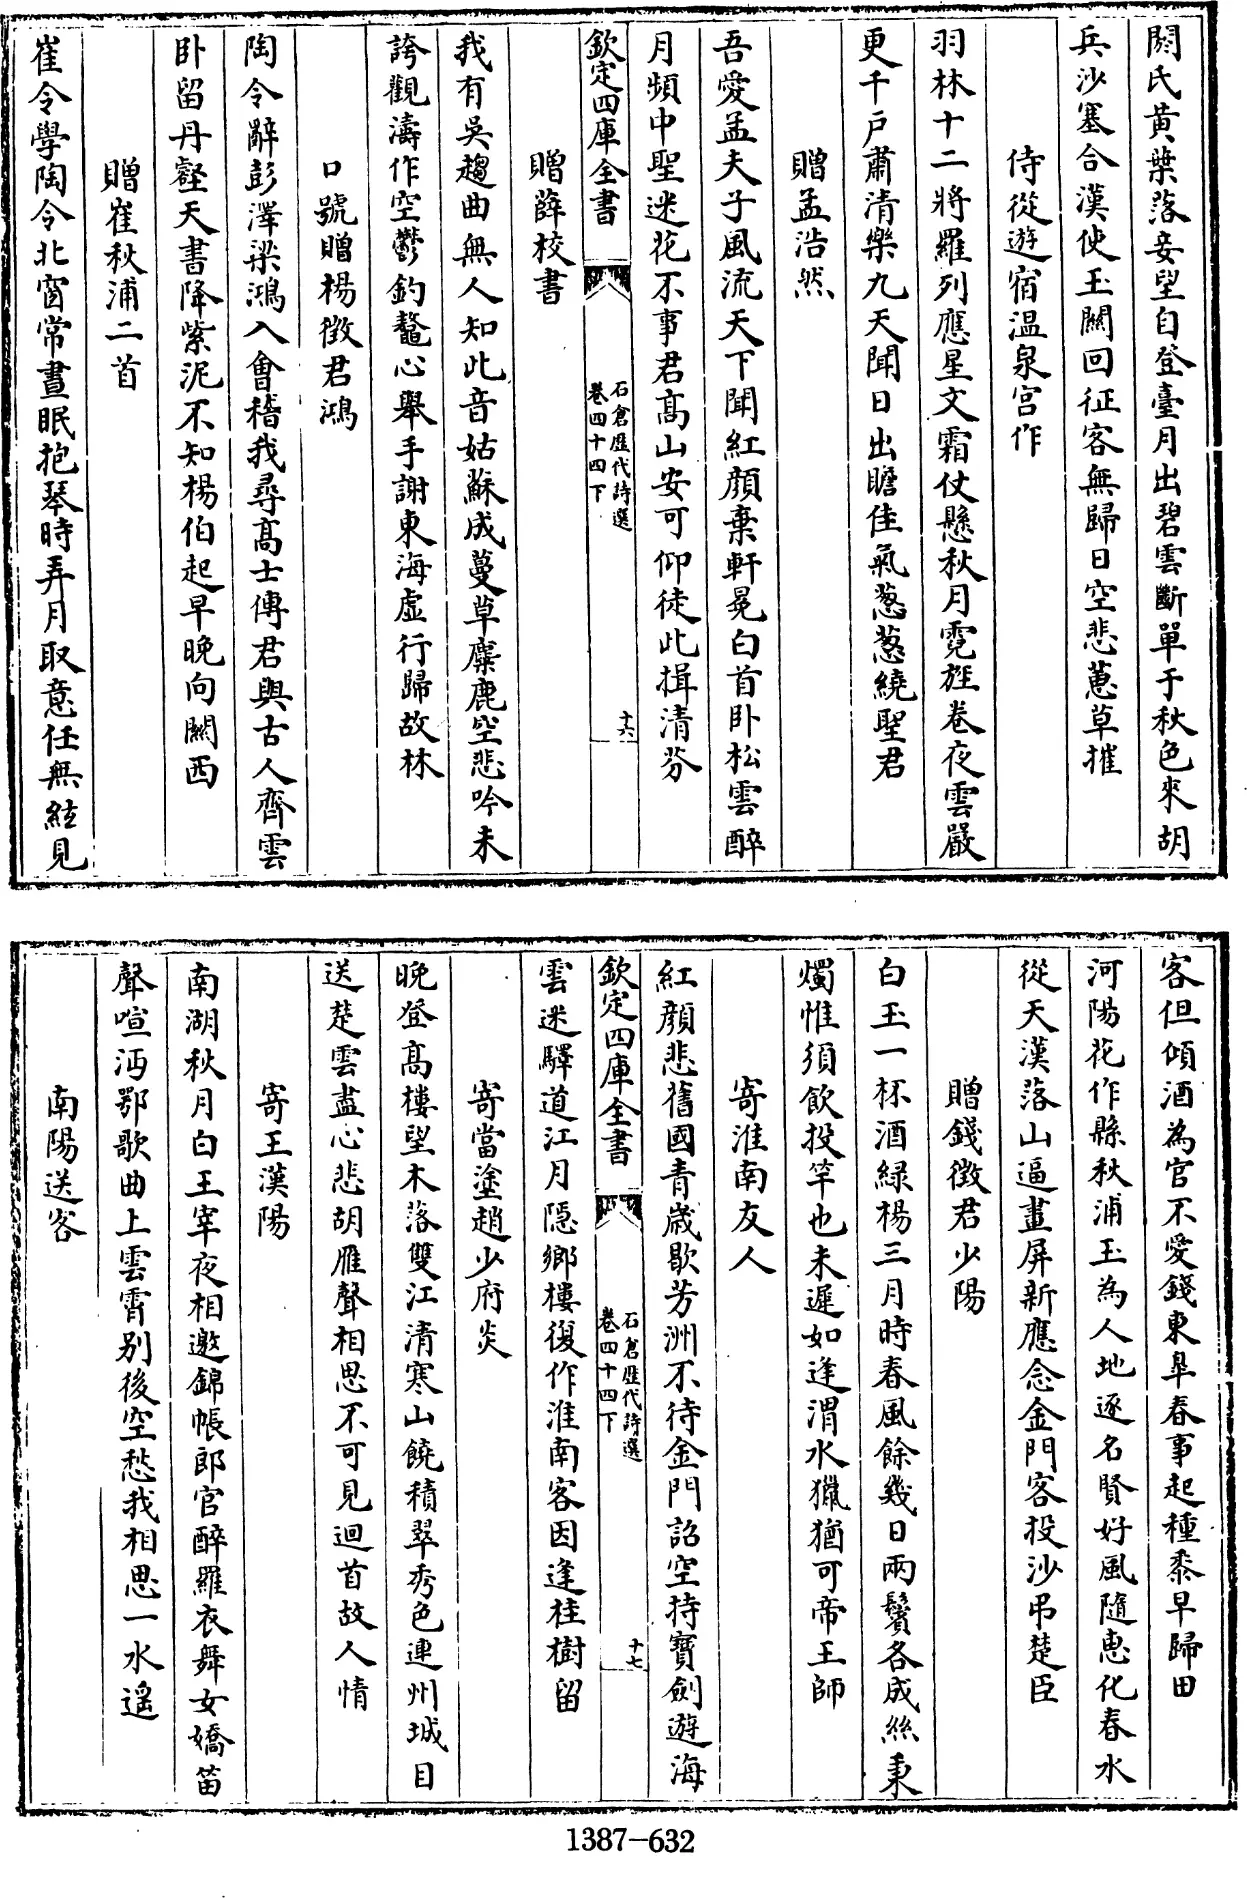 閼氏黄葉落妾望自登臺月出碧雲斷單于秋色來胡
兵沙塞合漢使玉關回征客無歸日空悲蕙草摧
侍從遊宿温泉宫作
羽林十二將羅列應星文霜仗懸秋月霓旌卷夜雲嚴
更千户肅清樂九天聞日出瞻佳氣葱葱繞聖君
贈孟浩然
吾愛孟夫子風流天下聞紅顔棄軒冕白首卧松雲醉
月頻中聖迷花不事君髙山安可仰徒此揖清芬
欽定四庫全書
石倉歴代詩選
卷四十四下
十六
贈薛校書
我有吳趨曲無人知此音姑蘇成蔓草麋鹿空悲吟未
誇觀濤作空鬱釣鼇心舉手謝東海虚行歸故林
口號贈楊徵君鴻
陶令辭彭澤梁鴻入會稽我尋髙士傳君與古人齊雲
卧留丹壑天書降紫泥不知楊伯起早晚向關西
贈崔秋浦二首
崔令學陶令北窗常晝眠抱琴時弄月取意任無絃見
客但傾酒為官不愛錢東臯春事起種黍早歸田
河陽花作縣秋浦玉為人地逐名賢好風隨惠化春水
從天漢落山逼畫屏新應念金門客投沙弔楚臣
贈錢徵君少陽
白玉一杯酒緑楊三月時春風餘幾日兩鬢各成絲秉
燭惟須飲投竿也未遲如逢渭水獵猶可帝王師
寄淮南友人
紅顔悲舊國青歳歇芳洲不待金門詔空持寶劍遊海
欽定四庫全書
石倉歴代詩選
卷四十四下
十七
雲迷驛道江月隠鄉樓復作淮南客因逢桂樹留
寄當塗趙少府炎
晚登髙樓望木落雙江清寒山饒積翠秀色連州城目
送楚雲盡心悲胡雁聲相思不可見迴首故人情
寄王漢陽
南湖秋月白王宰夜相邀錦帳郎官醉羅衣舞女嬌笛
聲喧沔鄂歌曲上雲霄别後空愁我相思一水遥
南陽送客
1387-632